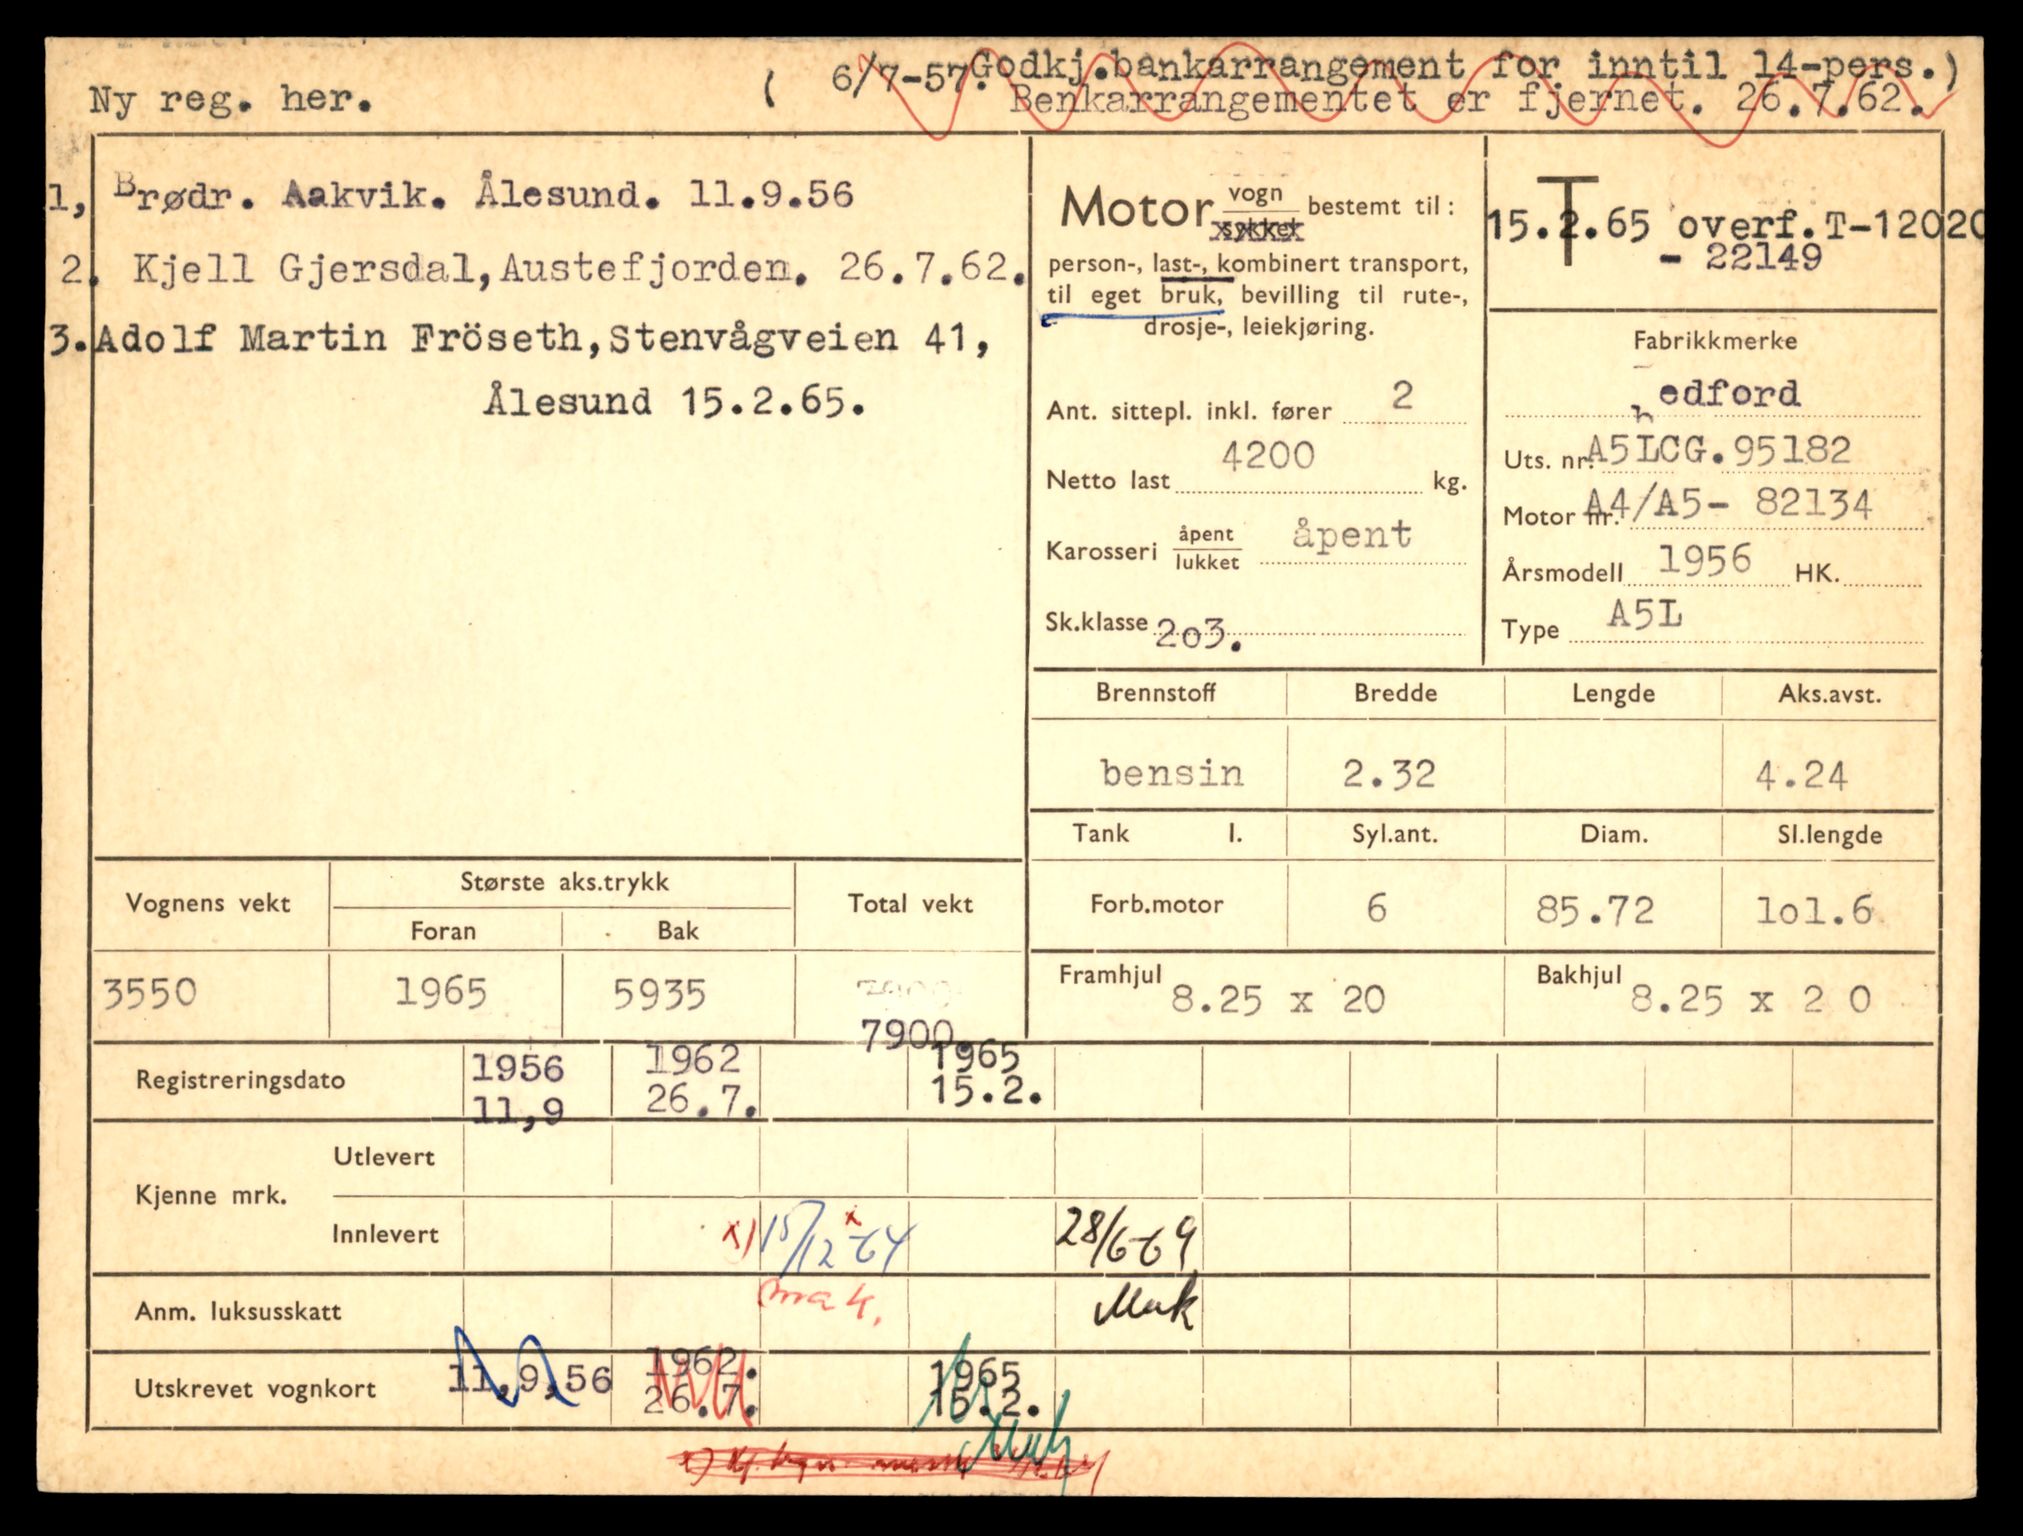 ( 6/7-57. Godkj.bankarrangement for inntil 14-pers.)
Ny reg. her. Benkarrangementet er fjernet. 26.7.62.
1, Brødr. Aakvik. Ålesund. 11.9.56
2. Kjell Gjersdal, Austefjorden. 26.7.62.
3. Adolf Martin Fröseth, Stenvågveien 41,
Ålesund 15.2.65.
Motor vogn bestemt til:
sykkel
person-, last-, kombinert transport,
til eget bruk, bevilling til rute-,
drosje-, leiekjøring.
Ant. sittepl. inkl. fører 2
Netto last 4200 kg.
Karosseri åpent/lukket åpent
Sk.klasse 2o3.
T
15.2.65 overf. T-12020
- 22149
Fabrikkmerke
edford
Uts. nr. A5LCG.95182
Motor nr. A4/A5- 82134
Årsmodell 1956 HK.
Type A5L
Brennstoff Bredde Lengde Aks.avst.
bensin 2.32 4.24
Tank l. Syl.ant. Diam. Sl.lengde
Forb.motor 6 85.72 1o1.6
Framhjul 8.25 x 20 Bakhjul 8.25 x 2 0
Vognens vekt Største aks.trykk Total vekt
Foran Bak
3550 1965 5935 7900
7900
Registreringsdato 1956 1962 1965
11,9 26.7. 15.2.
Kjenne mrk. Utlevert
Innlevert x) 15/12-64 x 28/6-69
Anm. luksusskatt mak. Mak
Utskrevet vognkort 11,9,56 1962. 1965
26.7. 15.2.